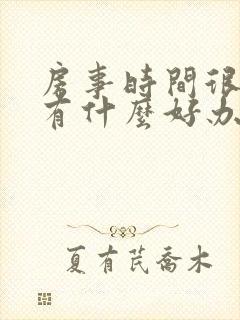 房事時間很
有什麼好办
夏有芪喬木